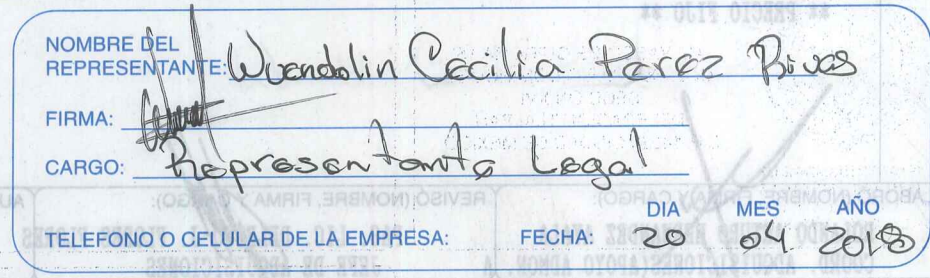 NOMBRE DEL
REPRESENTANTE: Wuendolin Cecilia Perez Rivas
FIRMA:
CARGO: Representante Legal
DIA MES AÑO
TELEFONO O CELULAR DE LA EMPRESA: FECHA: 20 04 2018